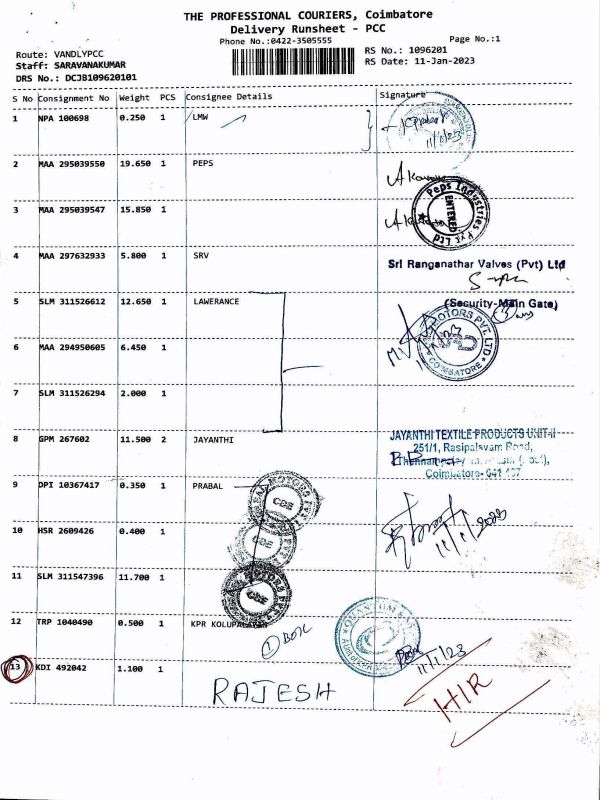 THE PROFESSIONAL COURIERS, Coimbatore
Delivery Runsheet - PCC
Phone No.:0422-3505555
Page No.:1
Route: VANDLYPCC
RS No.: 1096201
Staff: SARAVANAKUMAR
RS Date: 11-Jan-2023
DRS No.: DCJB109620101
S No Consignment No Weight PCS Consignee Details Signature
1 NPA 100698 0.250 1 LMW
11/1/23
2 MAA 295039550 19.650 1 PEPS
Peps Industries Pvt Ltd
ENTERED
3 MAA 295039547 15.850 1
4 MAA 297632933 5.800 1 SRV
Sri Ranganathar Valves (Pvt) Ltd
(Security-Main Gate)
5 SLM 311526612 12.650 1 LAWERANCE
MOTORS PVT. LTD
COIMBATORE
6 MAA 294950605 6.450 1
7 SLM 311526294 2.000 1
8 GPM 267602 11.500 2 JAYANTHI
JAYANTHI TEXTILE PRODUCTS UNIT-II
251/1, Rasipalayam Road,
Coimbatore- 641
9 DPI 10367417 0.350 1 PRABAL
MOTORS
CBE
11/1/2023
10 HSR 2609426 0.400 1
CBE
11 SLM 311547396 11.700 1
MOTORS
CBE
12 TRP 1040490 0.500 1 KPR KOLUPALAYAM
1 BOX
11/1/23
13 KDI 492042 1.100 1
RAJESH
HIR